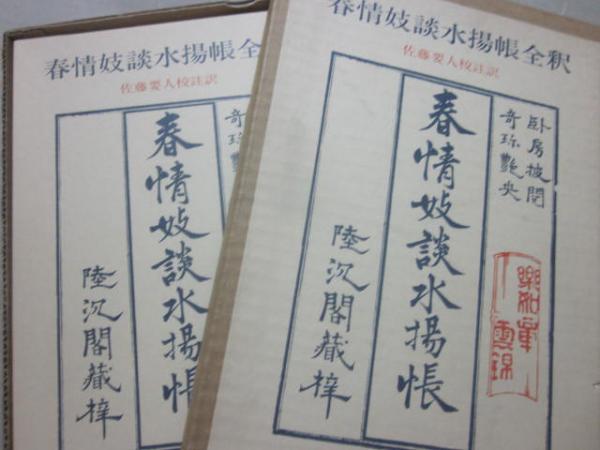 春情妓談水揚帳全
佐藤要人校註訳
奇珎
春情妓談水揚帳
陸沉閣藏梓
春情妓談水揚帳全釈
佐藤要人校註訳
臥房披閲
奇珎艶史
春情妓談水揚帳
陸沉閣藏梓